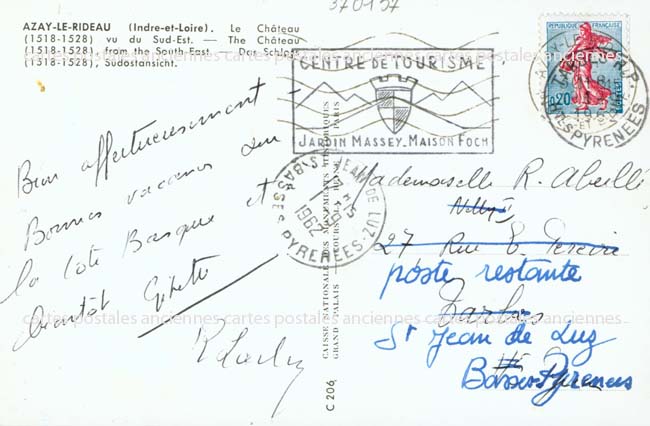 370197
AZAY-LE-RIDEAU (Indre-et-Loire). Le Château
(1518-1528) vu du Sud-Est. — The Château
(1518-1528), from the South-East — Das Schloss
(1518-1528), Südostansicht.
Bien affectueusement
Bonnes vacances sur
la Côte Basque et
bientôt
CENTRE DE TOURISME
JARDIN MASSEY_MAISON FOCH
REPUBLIQUE FRANÇAISE
0,20
POSTES
TARBES R.P.
HTES PYRENEES
ST JEAN DE LUZ
1962
BASSES PYRENEES
CAISSE NATIONALE DES MONUMENTS HISTORIQUES
GRAND PALAIS COURS LA REINE PARIS
C 206
Mademoiselle R. Abeille
27 Rue E. Pereire
poste restante
Tarbes
St Jean de Luz
Basses Pyrenees
cartes postales anciennes cartes postales anciennes cartes postales anciennes cartes postales anciennes